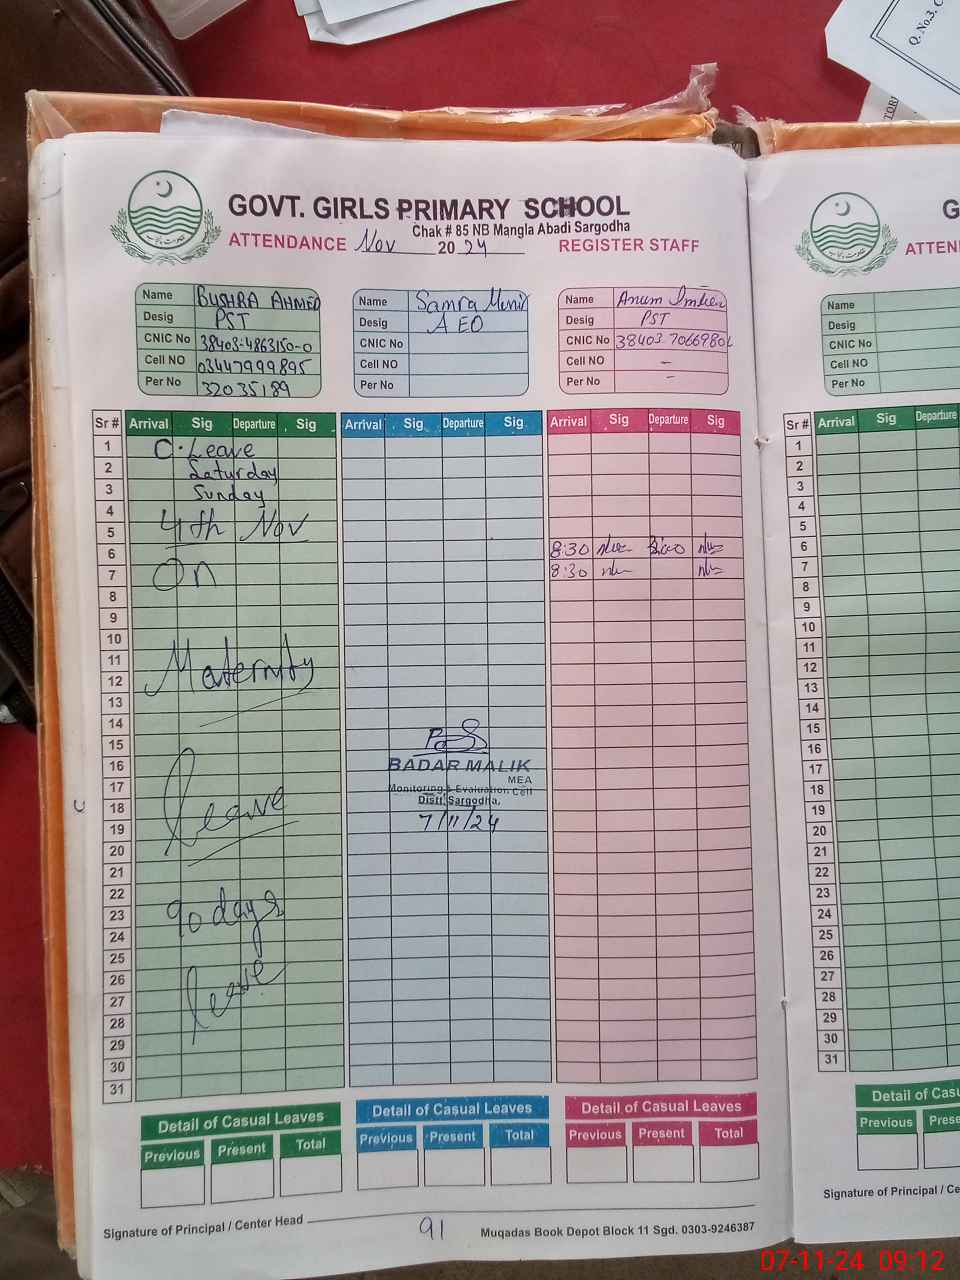 Q. No.3.
GOVT. GIRLS PRIMARY SCHOOL
Chak # 85 NB Mangla Abadi Sargodha
ATTENDANCE Nov 2024 REGISTER STAFF
Name BUSHRA AHMED
Desig PST
CNIC No 38403-4863150-0
Cell NO 03447999895
Per No 32035189
Name Samra Munir
Desig AEO
CNIC No
Cell NO
Per No
Name Anum
Desig PST
CNIC No
Cell NO -
Per No -
Sr # Arrival Sig Departure Sig Arrival Sig Departure Sig Arrival Sig Departure Sig
1 C. Leave
2 Saturday
3 Sunday
4
5 4th Nov
6 8:30
7 On 8:30
8
9
10
11
12 Maternity
13
14
15
16 BADAR MALIK
MEA
17 Monitoring & Evaluation Cell
18 Leave Distt. Sargodha.
19 7/11/24
20
21
22
23 90 days
24
25
26
27 leave
28
29
30
31
Detail of Casual Leaves
Previous Present Total
Detail of Casual Leaves
Previous Present Total
Detail of Casual Leaves
Previous Present Total
Signature of Principal / Center Head
91
Muqadas Book Depot Block 11 Sgd. 0303-9246387
G
ATTEN
Name
Desig
CNIC No
Cell NO
Per No
Sr # Arrival Sig Departure
1
2
3
4
5
6
7
8
9
10
11
12
13
14
15
16
17
18
19
20
21
22
23
24
25
26
27
28
29
30
31
Detail of Casu
Previous Prese
Signature of Principal / Ce
07-11-24 09:12